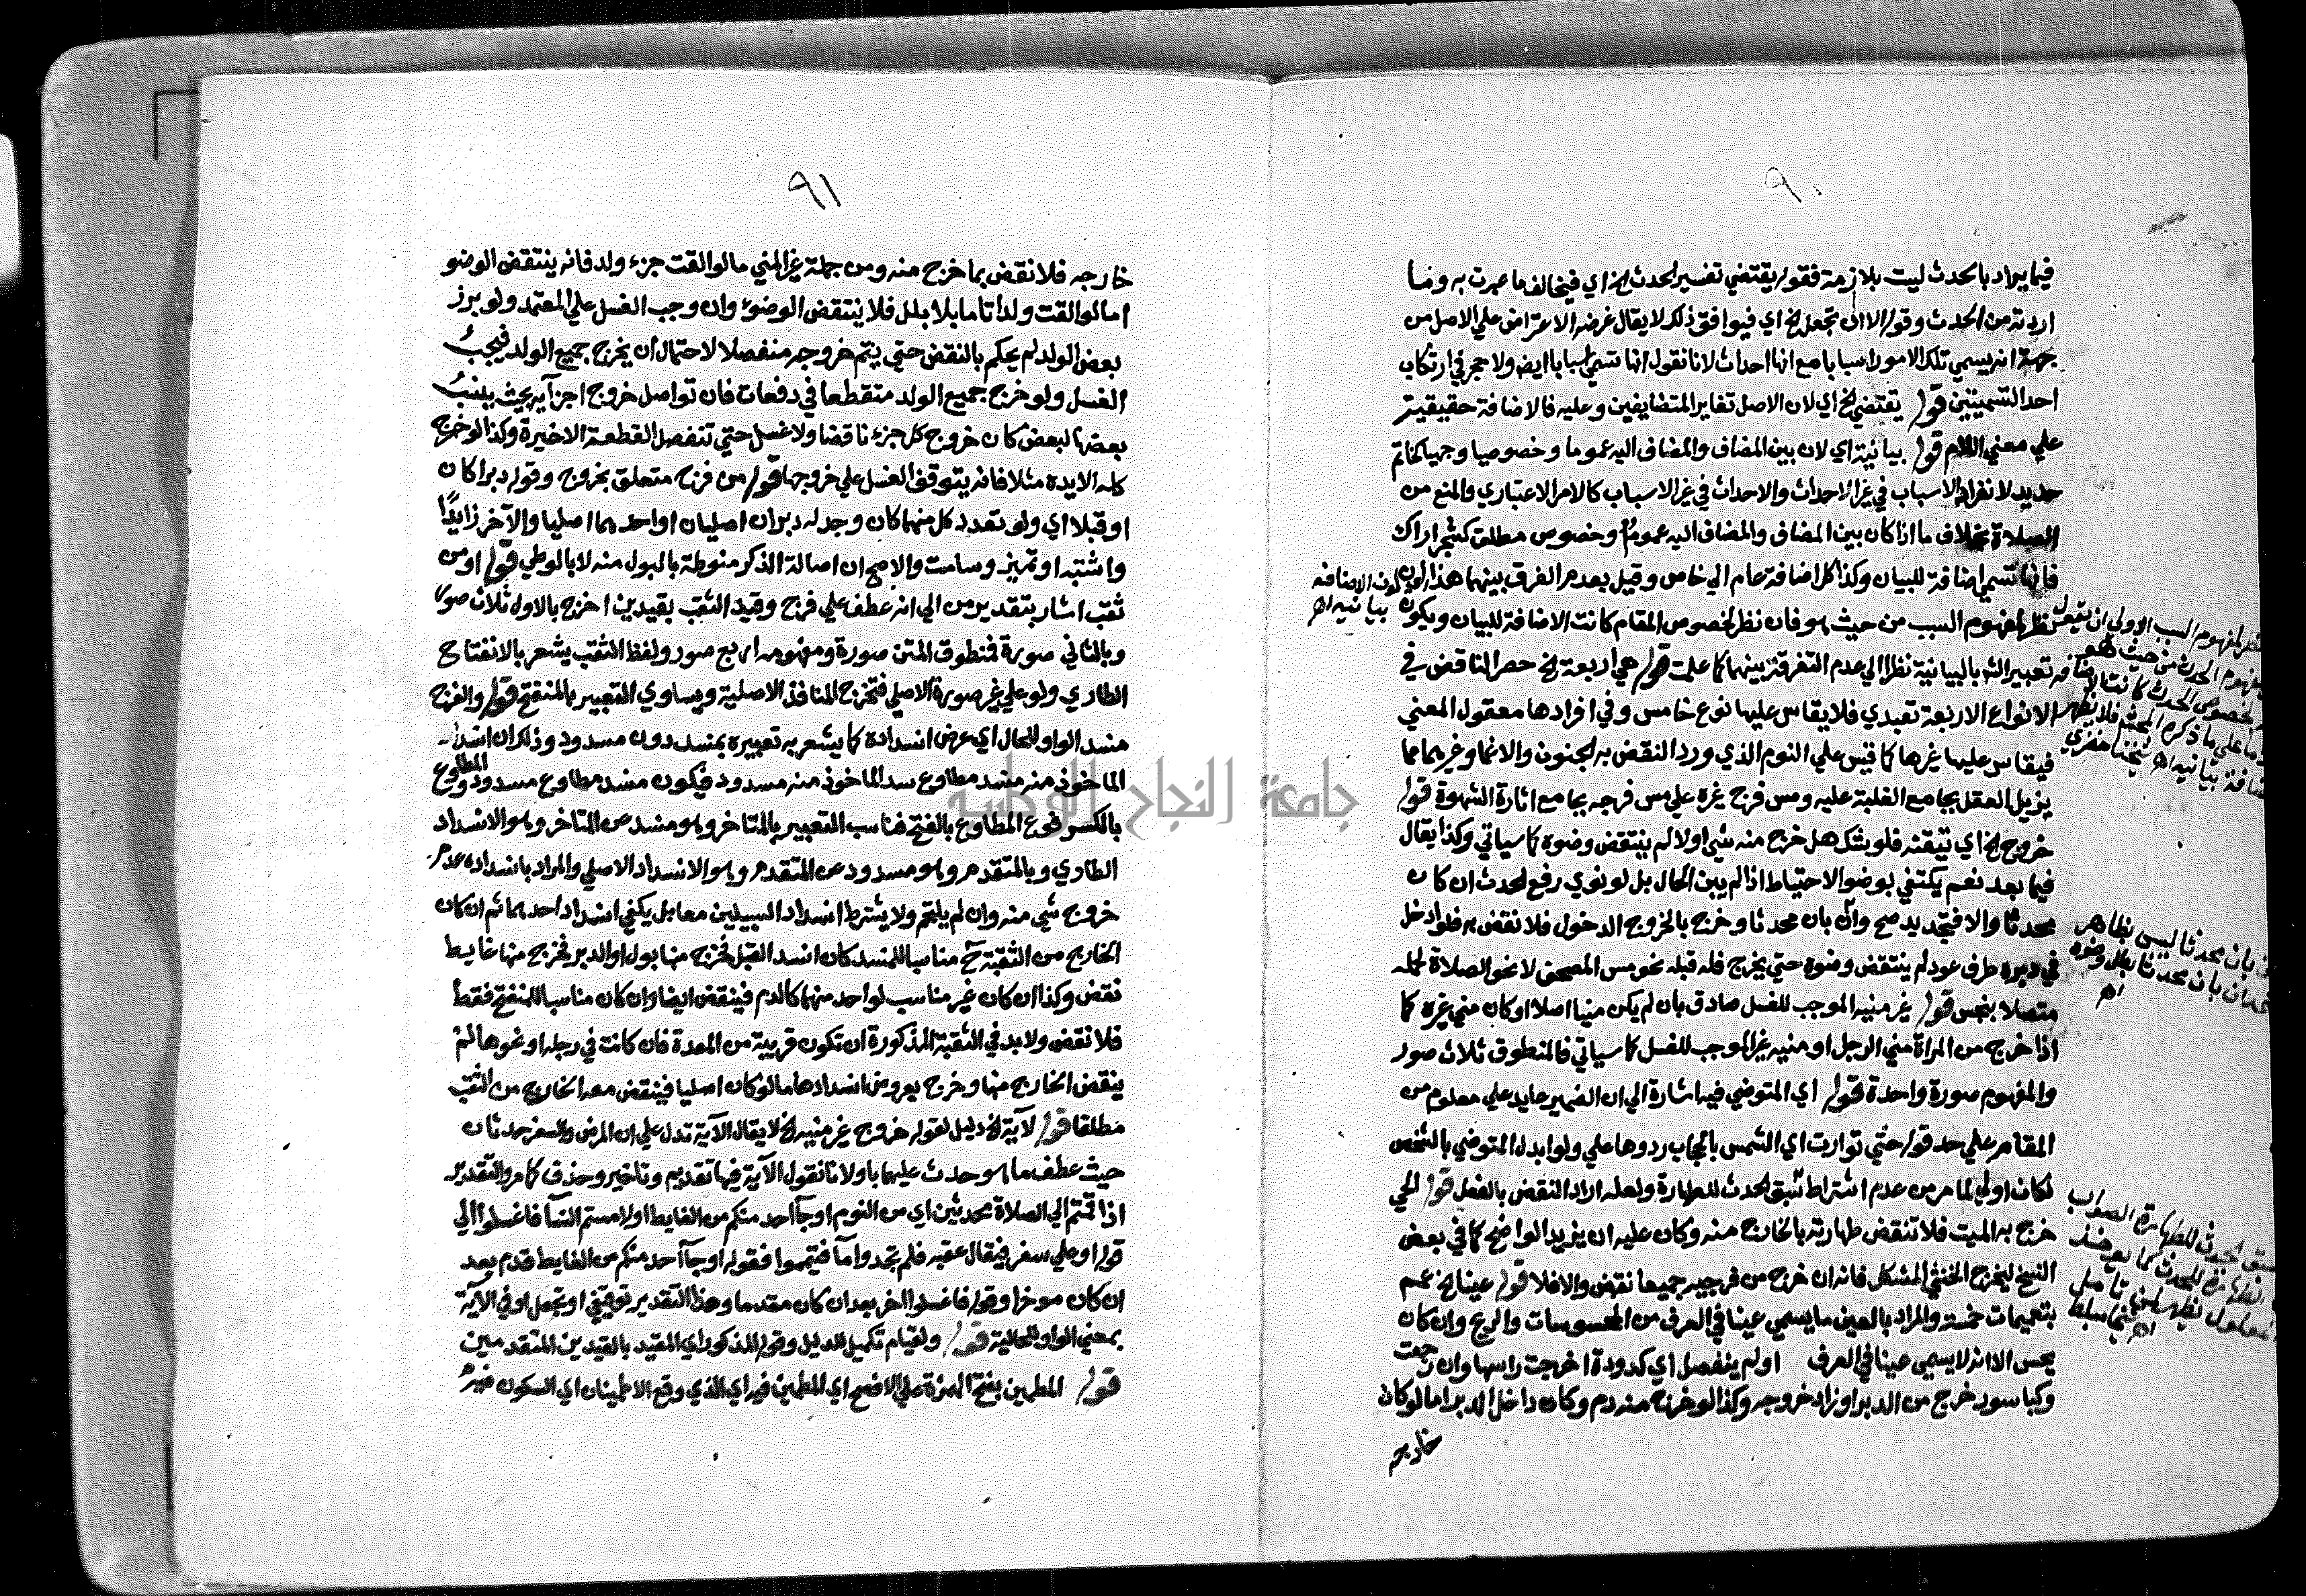 ٩٠
فيما يراد بالحدث ليست بلازمة فقوله يقتضي تفسير الحدث الخ اي فيخالف ما عبرت به وما
اردته من الحدث وقوله الا ان تجعل الخ اي فيوافق ذلك لا يقال غرضه الاعتراض علي الاصل من
جهة انه يسمي تلك الامور اسبابا مع انها احداث لانا نقول انها تسمي اسبابا ايضا ولا حجر في ارتكاب
احد التسميتين قوله يقتضي الخ اي لان الاصل تغاير المتضايفين وعليه فالاضافة حقيقية
علي معني اللام قوله بيانية اي لان بين المضاف والمضاف اليه عموما وخصوصيا وجهيا كخاتم
حديد لانفراد الاسباب في غير الاحداث والاحداث في غير الاسباب كالامر الاعتباري والمنع من
الصلاة بخلاف ما اذا كان بين المضاف والمضاف اليه عموم وخصوص مطلق كشجر اراك
فانها تسمي اضافة للبيان وكذا كل اضافة عام الي خاص وقيل بعدم الفرق بينهما هذا ان
نظر لمفهوم السبب من حيث هو فان نظر لخصوص المقام كانت الاضافة للبيان ويكون
تعبير الش بالبيانية نظرا الي عدم التفرقة بينهما كما علمت قوله هي اربعة الخ حصر الناقض في
الانواع الاربعة تعبدي فلا يقاس عليها نوع خامس وفي افرادها معقول المعني
فيقاس عليها غيرها كما قيس علي النوم الذي ورد النقض به الجنون والاغما وغيرهما مما
يزيل العقل بجامع الغلبة عليه ومس فرج غيره علي مس فرجه بجامع اثارة الشهوة قوله
خروج الخ اي تيقنه فلو شك هل خرج منه شي اولا لم ينتقض وضوءه كما سياتي وكذا يقال
فيما بعد نعم يكتفي بوضو الاحتياط اذا لم يبن الحال بل لو نوي رفع الحدث ان كان
محدثا والا فتجديد صح وان بان محدثا وخرج بالخروج الدخول فلا نقض به فلو ادخل
في دبره طرف عود لم ينتقض وضوه حتي يخرج فله قبله نحو مس المصحف لا نحو الصلاة لحمله
متصلا بنجس قوله غير منيه الموجب للغسل صادق بان لم يكن منيا اصلا او كان مني غيره كما
اذا خرج من المراة مني الرجل او منيه غير الموجب للغسل كما سياتي فالمنطوق ثلاث صور
والمفهوم صورة واحدة قوله اي المتوضي فيه اشارة الي ان الضمير عايد علي معلوم من
المقام علي حد قوله حتي توارت اي الشمس بالحجاب ردوها علي ولو ابدل المتوضي بالشخص
لكان اولي لما مر من عدم اشتراط سبق الحدث للطهارة ولعله اراد النقض بالفعل قوله الحي
خرج به الميت فلا تنقض طهارته بالخارج منه وكان عليه ان يزيد الواضح كما في بعض
النسخ ليخرج الخنثي المشكل فانه ان خرج من فرجيه جميعا نقض والا فلا قوله عينا الخ عمم
بتعميمات خمسة والمراد بالعين ما يسمي عينا في العرف من المحسوسات والريح وان كان
يحس الا انه لا يسمي عينا في العرف او لم ينفصل اي كدودة اخرجت راسها وان رجعت
وكباسور خرج من الدبر او زاد خروجه وكذا لو خرج منه دم وكان داخل الدبر اما لو كان
خارجه
٩١
خارجه فلا نقض بما خرج منه ومن جملة غير المني ما لو القت جزء ولد فانه ينتقض الوضو
اما لو القت ولدا تاما بلا بلل فلا ينتقض الوضوء وان وجب الغسل علي المعتمد ولو برز
بعض الولد لم يحكم بالنقض حتي يتم خروجه منفصلا لاحتمال ان يخرج جميع الولد فيجب
الغسل ولو خرج جميع الولد متقطعا في دفعات فان تواصل خروج اجزآيه بحيث ينسب
بعضها لبعض كان خروج كل جزء ناقضا ولا غسل حتي تنفصل القطعة الاخيرة وكذا لو خرج
كله الا يده مثلا فانه يتوقف الغسل علي خروجها قوله من فرج متعلق بخروج وقوله دبرا كان
او قبلا اي ولو تعدد كل منهما كان وجد له دبران اصليان او احدهما اصليا والآخر زايدا
واشتبه او تميز وسامت والاصح ان اصالة الذكر منوطة بالبول منه لا بالوطي قوله او من
ثقب اشار بتقدير من الي انه عطف علي فرج وقيد الثقب بقيدين اخرج بالاول ثلاث صور
وبالثاني صورة فمنطوق المتن صورة ومفهومه اربع صور ولفظ الثقب يشعر بالانفتاح
الطاري ولو علي غير صورة الاصلي فتخرج المنافذ الاصلية ويساوي التعبير بالمنفتح قوله والفرج
منسد الواو للحال اي عرض انسداده كما يشعر به تعبيره بمنسد دون مسدود وذكر ان انسد
الماخوذ منه منسد مطاوع سد الماخوذ منه مسدود فيكون منسد مطاوع مسدود والمطاوع
بالكسر فرع المطاوع بالفتح فناسب التعبير بالمتاخر وهو منسد عن المتاخر وهو الانسداد
الطاري وبالمتقدم وهو مسدود عن المتقدم وهو الانسداد الاصلي والمراد بانسداده عدم
خروج شي منه وان لم يلتحم ولا يشترط انسداد السبيلين معا بل يكفي انسداد احدهما ثم ان كان
الخارج من الثقبة ح مناسبا للمنسد كان انسد القبل فخرج منها بول او الدبر فخرج منها غايط
نقض وكذا ان كان غير مناسب لواحد منهما كالدم فينقض ايضا وان كان مناسبا للمنفتح فقط
فلا نقض ولا بد في الثقبة المذكورة ان تكون قريبة من المعدة فان كانت في رجله او نحوها لم
ينقض الخارج منها وخرج بعروض انسدادها ما لو كان اصليا فينقض معه الخارج من الثقب
مطلقا قوله لآية الخ دليل لقوله خروج غير منيه الخ لا يقال الآية تدل علي ان المرض والسفر حدثان
حيث عطف ما هو حدث عليهما باو لانا نقول الآية فيها تقديم وتاخير وحذف كما مر والتقدير
اذا قمتم الي الصلاة محدثين اي من النوم او جآ احد منكم من الغايط او لامستم النسآ فاغسلوا الي
قوله او علي سفر فيقال عقبه فلم تجدوا مآ فتيمموا فقوله او جآ احد منكم من الغايط قدم بعد
ان كان موخرا وقوله فاغسلوا اخر بعد ان كان مقدما وهذا التقدير توقيفي او تجعل او في الآية
بمعني الواو الحالية قوله ولقيام تكميل للدليل وقوله المذكور اي المقيد بالقيدين المتقدمين
قوله المطمين بفتح الهمزة علي الافصح اي المطمين فيه اي الذي وقع الاطمينان اي السكون فيه